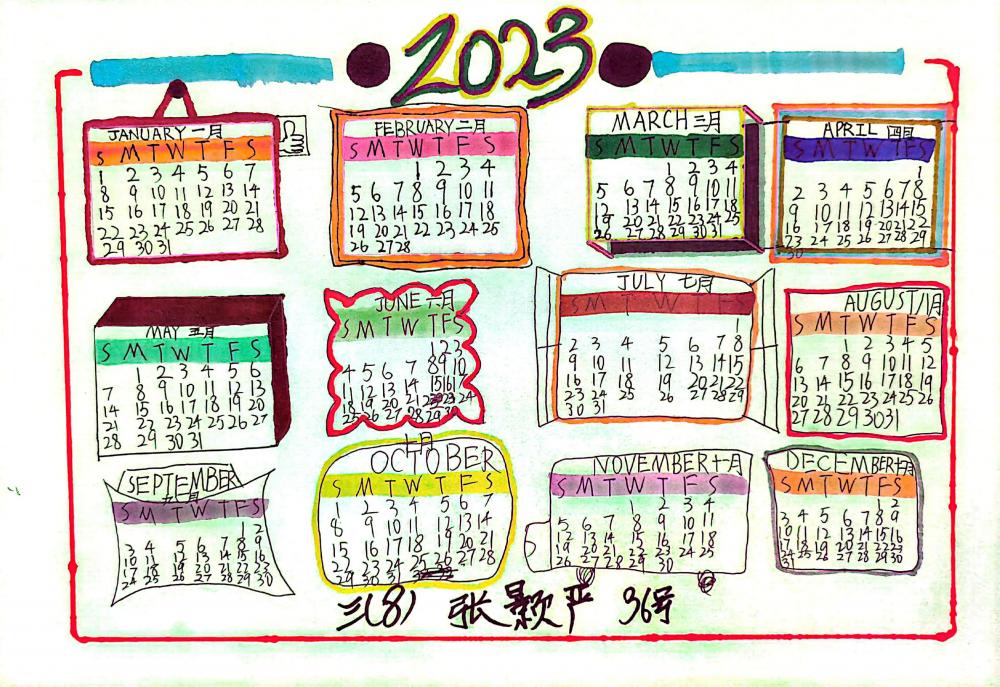 2023
JANUARY 一月
S M T W T F S
1 2 3 4 5 6 7
8 9 10 11 12 13 14
15 16 17 18 19 20 21
22 23 24 25 26 27 28
29 30 31
FEBRUARY 二月
S M T W T F S
1 2 3 4
5 6 7 8 9 10 11
12 13 14 15 16 17 18
19 20 21 22 23 24 25
26 27 28
MARCH 三月
S M T W T F S
1 2 3 4
5 6 7 8 9 10 11
12 13 14 15 16 17 18
19 20 21 22 23 24 25
26 27 28 29 30 31
APRIL 四月
S M T W T F S
1
2 3 4 5 6 7 8
9 10 11 12 13 14 15
16 17 18 19 20 21 22
23 24 25 26 27 28 29
30
MAY 五月
S M T W T F S
1 2 3 4 5 6
7 8 9 10 11 12 13
14 15 16 17 18 19 20
21 22 23 24 25 26 27
28 29 30 31
JUNE 六月
S M T W T F S
1 2 3
4 5 6 7 8 9 10
11 12 13 14 15 16 17
18 19 20 21 22 23 24
25 26 27 28 29 30
JULY 七月
S M T W T F S
1
2 3 4 5 6 7 8
9 10 11 12 13 14 15
16 17 18 19 20 21 22
23 24 25 26 27 28 29
30 31
AUGUST 八月
S M T W T F S
1 2 3 4 5
6 7 8 9 10 11 12
13 14 15 16 17 18 19
20 21 22 23 24 25 26
27 28 29 30 31
SEPTEMBER
九月
S M T W T F S
1 2
3 4 5 6 7 8 9
10 11 12 13 14 15 16
17 18 19 20 21 22 23
24 25 26 27 28 29 30
十月
OCTOBER
S M T W T F S
1 2 3 4 5 6 7
8 9 10 11 12 13 14
15 16 17 18 19 20 21
22 23 24 25 26 27 28
29 30 31
NOVEMBER 十一月
S M T W T F S
1 2 3 4
5 6 7 8 9 10 11
12 13 14 15 16 17 18
19 20 21 22 23 24 25
26 27 28 29 30
DECEMBER 十二月
S M T W T F S
1 2
3 4 5 6 7 8 9
10 11 12 13 14 15 16
17 18 19 20 21 22 23
24 25 26 27 28 29 30
31
三(8) 张颢严 36号